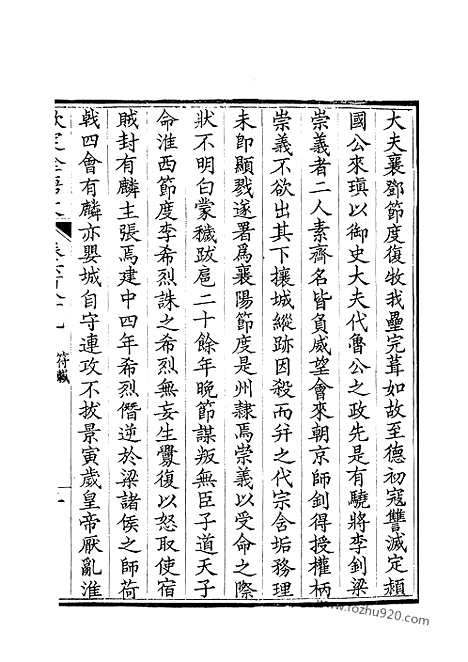 大夫襄鄧節度復牧我壘完葺如故至德初寇讐滅定潁
國公來瑱以御史大夫代魯公之政先是有驍將李釗梁
崇義者二人素齊名皆負威望會來朝京師釗得授權柄
崇義不欲出其下攘城縱跡因殺而弁之代宗含垢務理
未即顯戮遂署爲襄陽節度是州隸焉崇義以受命之際
狀不明白蒙穢跋扈二十餘年晚節謀叛無臣子道天子
命淮西節度李希烈誅之希烈無妄生釁復以怒取使宿
賊封有麟主張焉建中四年希烈僭逆於梁諸侯之師荷
戟四會有麟亦嬰城自守連攻不拔景寅歲皇帝厭亂淮
符載
www.fozhu920.com